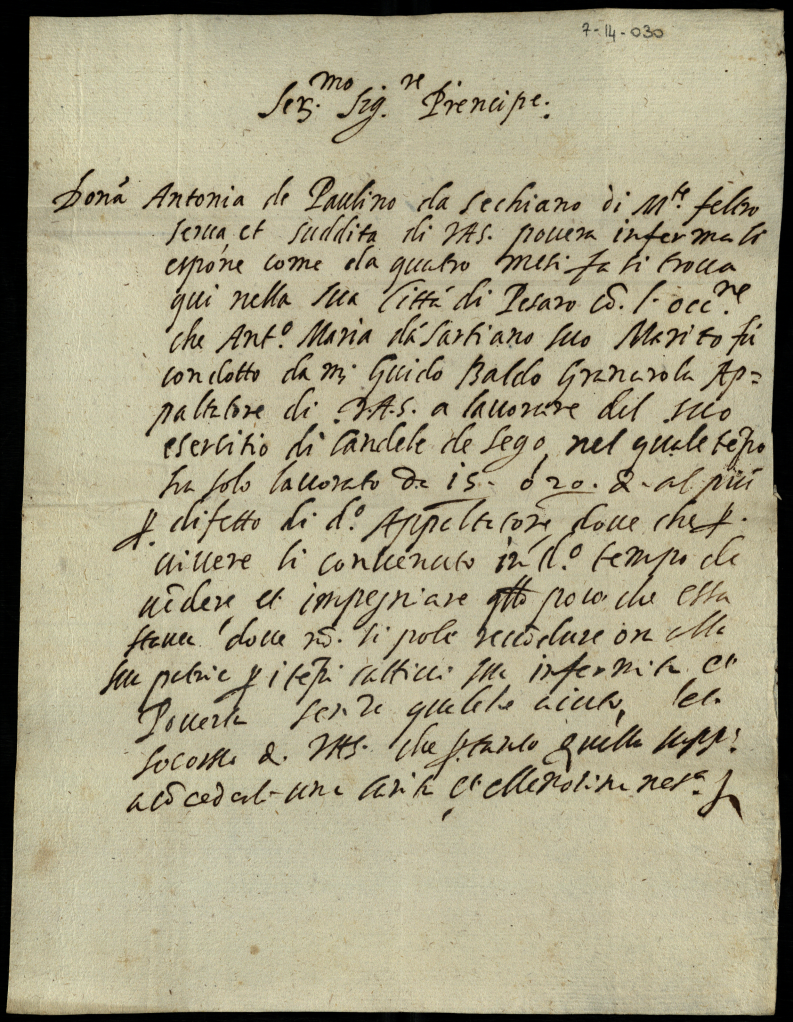 7-14-030
Ser.mo Sig.re Prencipe.
Donā Antonia de Paulino da sechiano di M.te feltro
serua et suddita di VAS. pouera inferma li
espone come da quatro mesi fa si troua
qui nella sua Città di Pesaro cō. l'occ.ne
che Ant.o Maria da Sartiano suo Marito fù
condotto da m Guido Baldo Granarola Ap=
paltatore di VAS. a lauorare del suo
esercitio di Candele de sego, nel quale tēpo
ha solo lauorato da 15. ò 20. al più
ꝑ. difetto di d.o Appaltatore, doue che ꝑ.
uiuere li conuenuto in d.o tempo de
uēdere et impegniare poco che essa
doue nō. si pole recōdure ora alla
sua patria ꝑ i tēpi cattiui sua infermità et
Pouertà senza qualche aiuto, et
socorso VAS. che ꝑtanto quella supp.
a cōcederli una Carità et